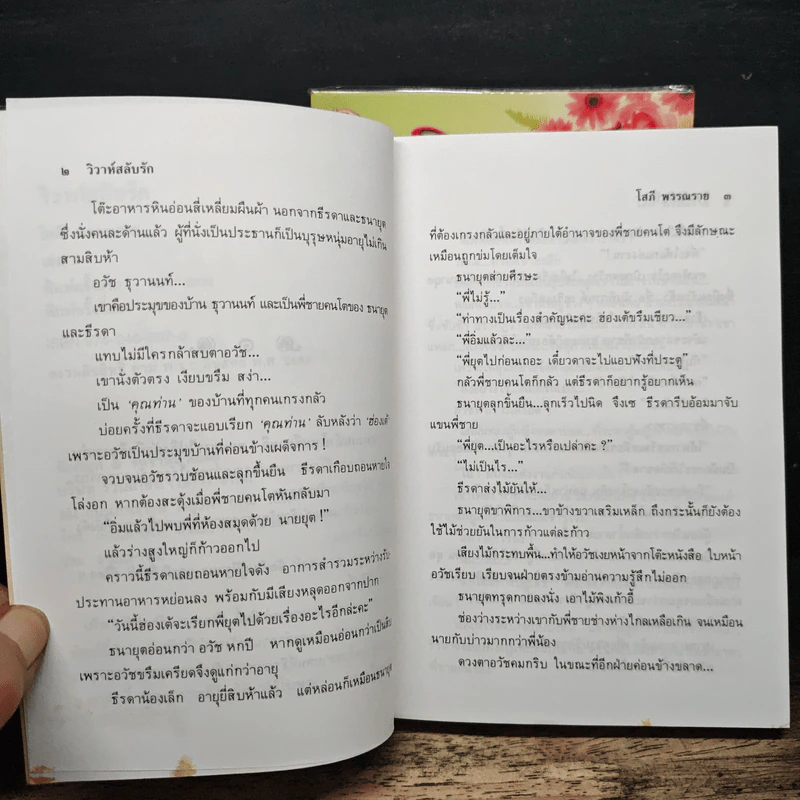 ๒ วิวาห์สลับรัก
โต๊ะอาหารหินอ่อนสี่เหลี่ยมผืนผ้า นอกจากธีรดาและธนายุต
ซึ่งนั่งคนละด้านแล้ว ผู้ที่นั่งเป็นประธานก็เป็นบุรุษหนุ่มอายุไม่เกิน
สามสิบห้า
อวัช ธุวานนท์...
เขาคือประมุขของบ้าน ธุวานนท์ และเป็นพี่ชายคนโตของ ธนายุต
และธีรดา
แทบไม่มีใครกล้าสบตาอวัช...
เขานั่งตัวตรง เงียบขรึม สง่า...
เป็น ‘คุณท่าน’ ของบ้านที่ทุกคนเกรงกลัว
บ่อยครั้งที่ธีรดาจะแอบเรียก ‘คุณท่าน’ ลับหลังว่า ‘ฮ่องเต้’
เพราะอวัชเป็นประมุขบ้านที่ค่อนข้างเผด็จการ !
จวบจนอวัชรวบช้อนและลุกขึ้นยืน ธีรดาเกือบถอนหายใจ
โล่งอก หากต้องสะดุ้งเมื่อพี่ชายคนโตหันกลับมา
“อิ่มแล้วไปพบพี่ที่ห้องสมุดด้วย นายยุต !”
แล้วร่างสูงใหญ่ก็ก้าวออกไป
คราวนี้ธีรดาเลยถอนหายใจดัง อาการสำรวมระหว่างรับ-
ประทานอาหารหย่อนลง พร้อมกับมีเสียงหลุดออกจากปาก
“วันนี้ฮ่องเต้จะเรียกพี่ยุตไปด้วยเรื่องอะไรอีกล่ะคะ”
ธนายุตอ่อนกว่า อวัช หกปี หากดูเหมือนอ่อนกว่าเป็นสิบ
เพราะอวัชขรึมเครียดจึงดูแก่กว่าอายุ
ธีรดาน้องเล็ก อายุยี่สิบห้าแล้ว แต่หล่อนก็เหมือนธนายุต
โสภี พรรณราย ๓
ที่ต้องเกรงกลัวและอยู่ภายใต้อำนาจของพี่ชายคนโต จึงมีลักษณะ
เหมือนถูกข่มโดยเต็มใจ
ธนายุตส่ายศีรษะ
“พี่ไม่รู้...”
“ท่าทางเป็นเรื่องสำคัญนะคะ ฮ่องเต้ขรึมเชียว...”
“พี่อิ่มแล้วละ...”
“พี่ยุตไปก่อนเถอะ เดี๋ยวดาจะไปแอบฟังที่ประตู”
กลัวพี่ชายคนโตก็กลัว แต่ธีรดาก็อยากรู้อยากเห็น
ธนายุตลุกขึ้นยืน...ลุกเร็วไปนิด จึงเซ ธีรดารีบอ้อมมาจับ
แขนพี่ชาย
“พี่ยุต...เป็นอะไรหรือเปล่าคะ ?”
“ไม่เป็นไร...”
ธีรดาส่งไม้ยันให้...
ธนายุตขาพิการ...ขาข้างขวาเสริมเหล็ก ถึงกระนั้นก็ยังต้อง
ใช้ไม้ช่วยยันในการก้าวแต่ละก้าว
เสียงไม้กระทบพื้น...ทำให้อวัชเงยหน้าจากโต๊ะหนังสือ ใบหน้า
อวัชเรียบ เรียบจนฝ่ายตรงข้ามอ่านความรู้สึกไม่ออก
ธนายุตทรุดกายลงนั่ง เอาไม้พิงเก้าอี้
ช่องว่างระหว่างเขากับพี่ชายช่างห่างไกลเหลือเกิน จนเหมือน
นายกับบ่าวมากกว่าพี่น้อง
ดวงตาอวัชคมกริบ ในขณะที่อีกฝ่ายค่อนข้างขลาด...